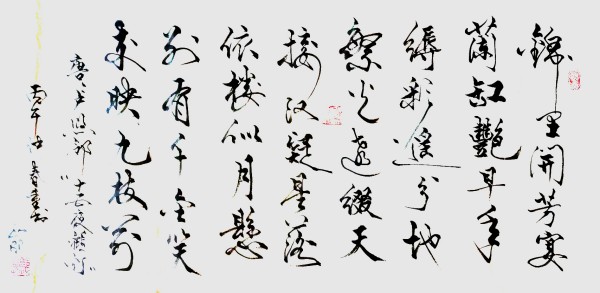 錦里開芳宴
蘭缸艷早年
縟彩遙分地
繁光遠綴天
接汉疑星落
依楼似月懸
别有千金笑
来映九枝前
唐 卢照邻 "十五夜观灯"
丙午 春書